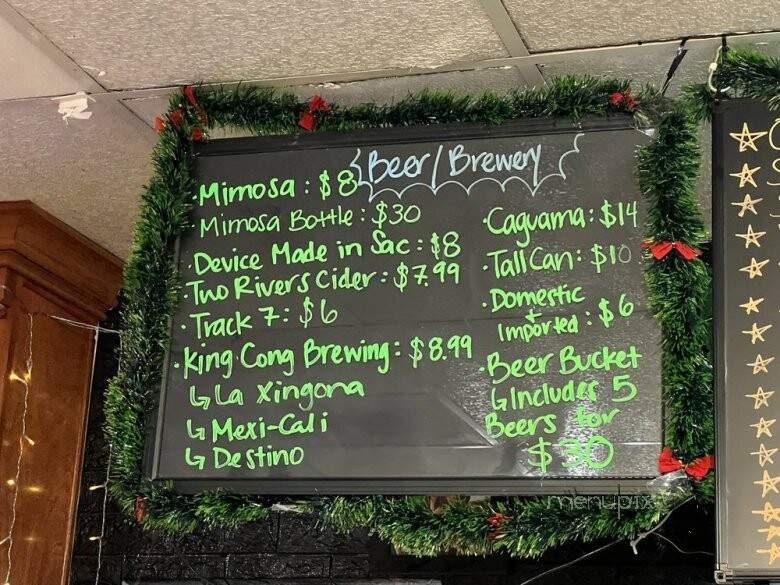 Beer/Brewery
·Mimosa: $8
·Mimosa Bottle: $30
·Device Made in Sac: $8
·Two Rivers Cider: $7.99
·Track 7: $6
·King Cong Brewing: $8.99
↳La Xingona
↳Mexi-Cali
↳Destino
·Caguama: $14
·Tall Can: $10
·Domestic
+
Imported: $6
·Beer Bucket
↳Includes 5
Beers for
$30
menupix